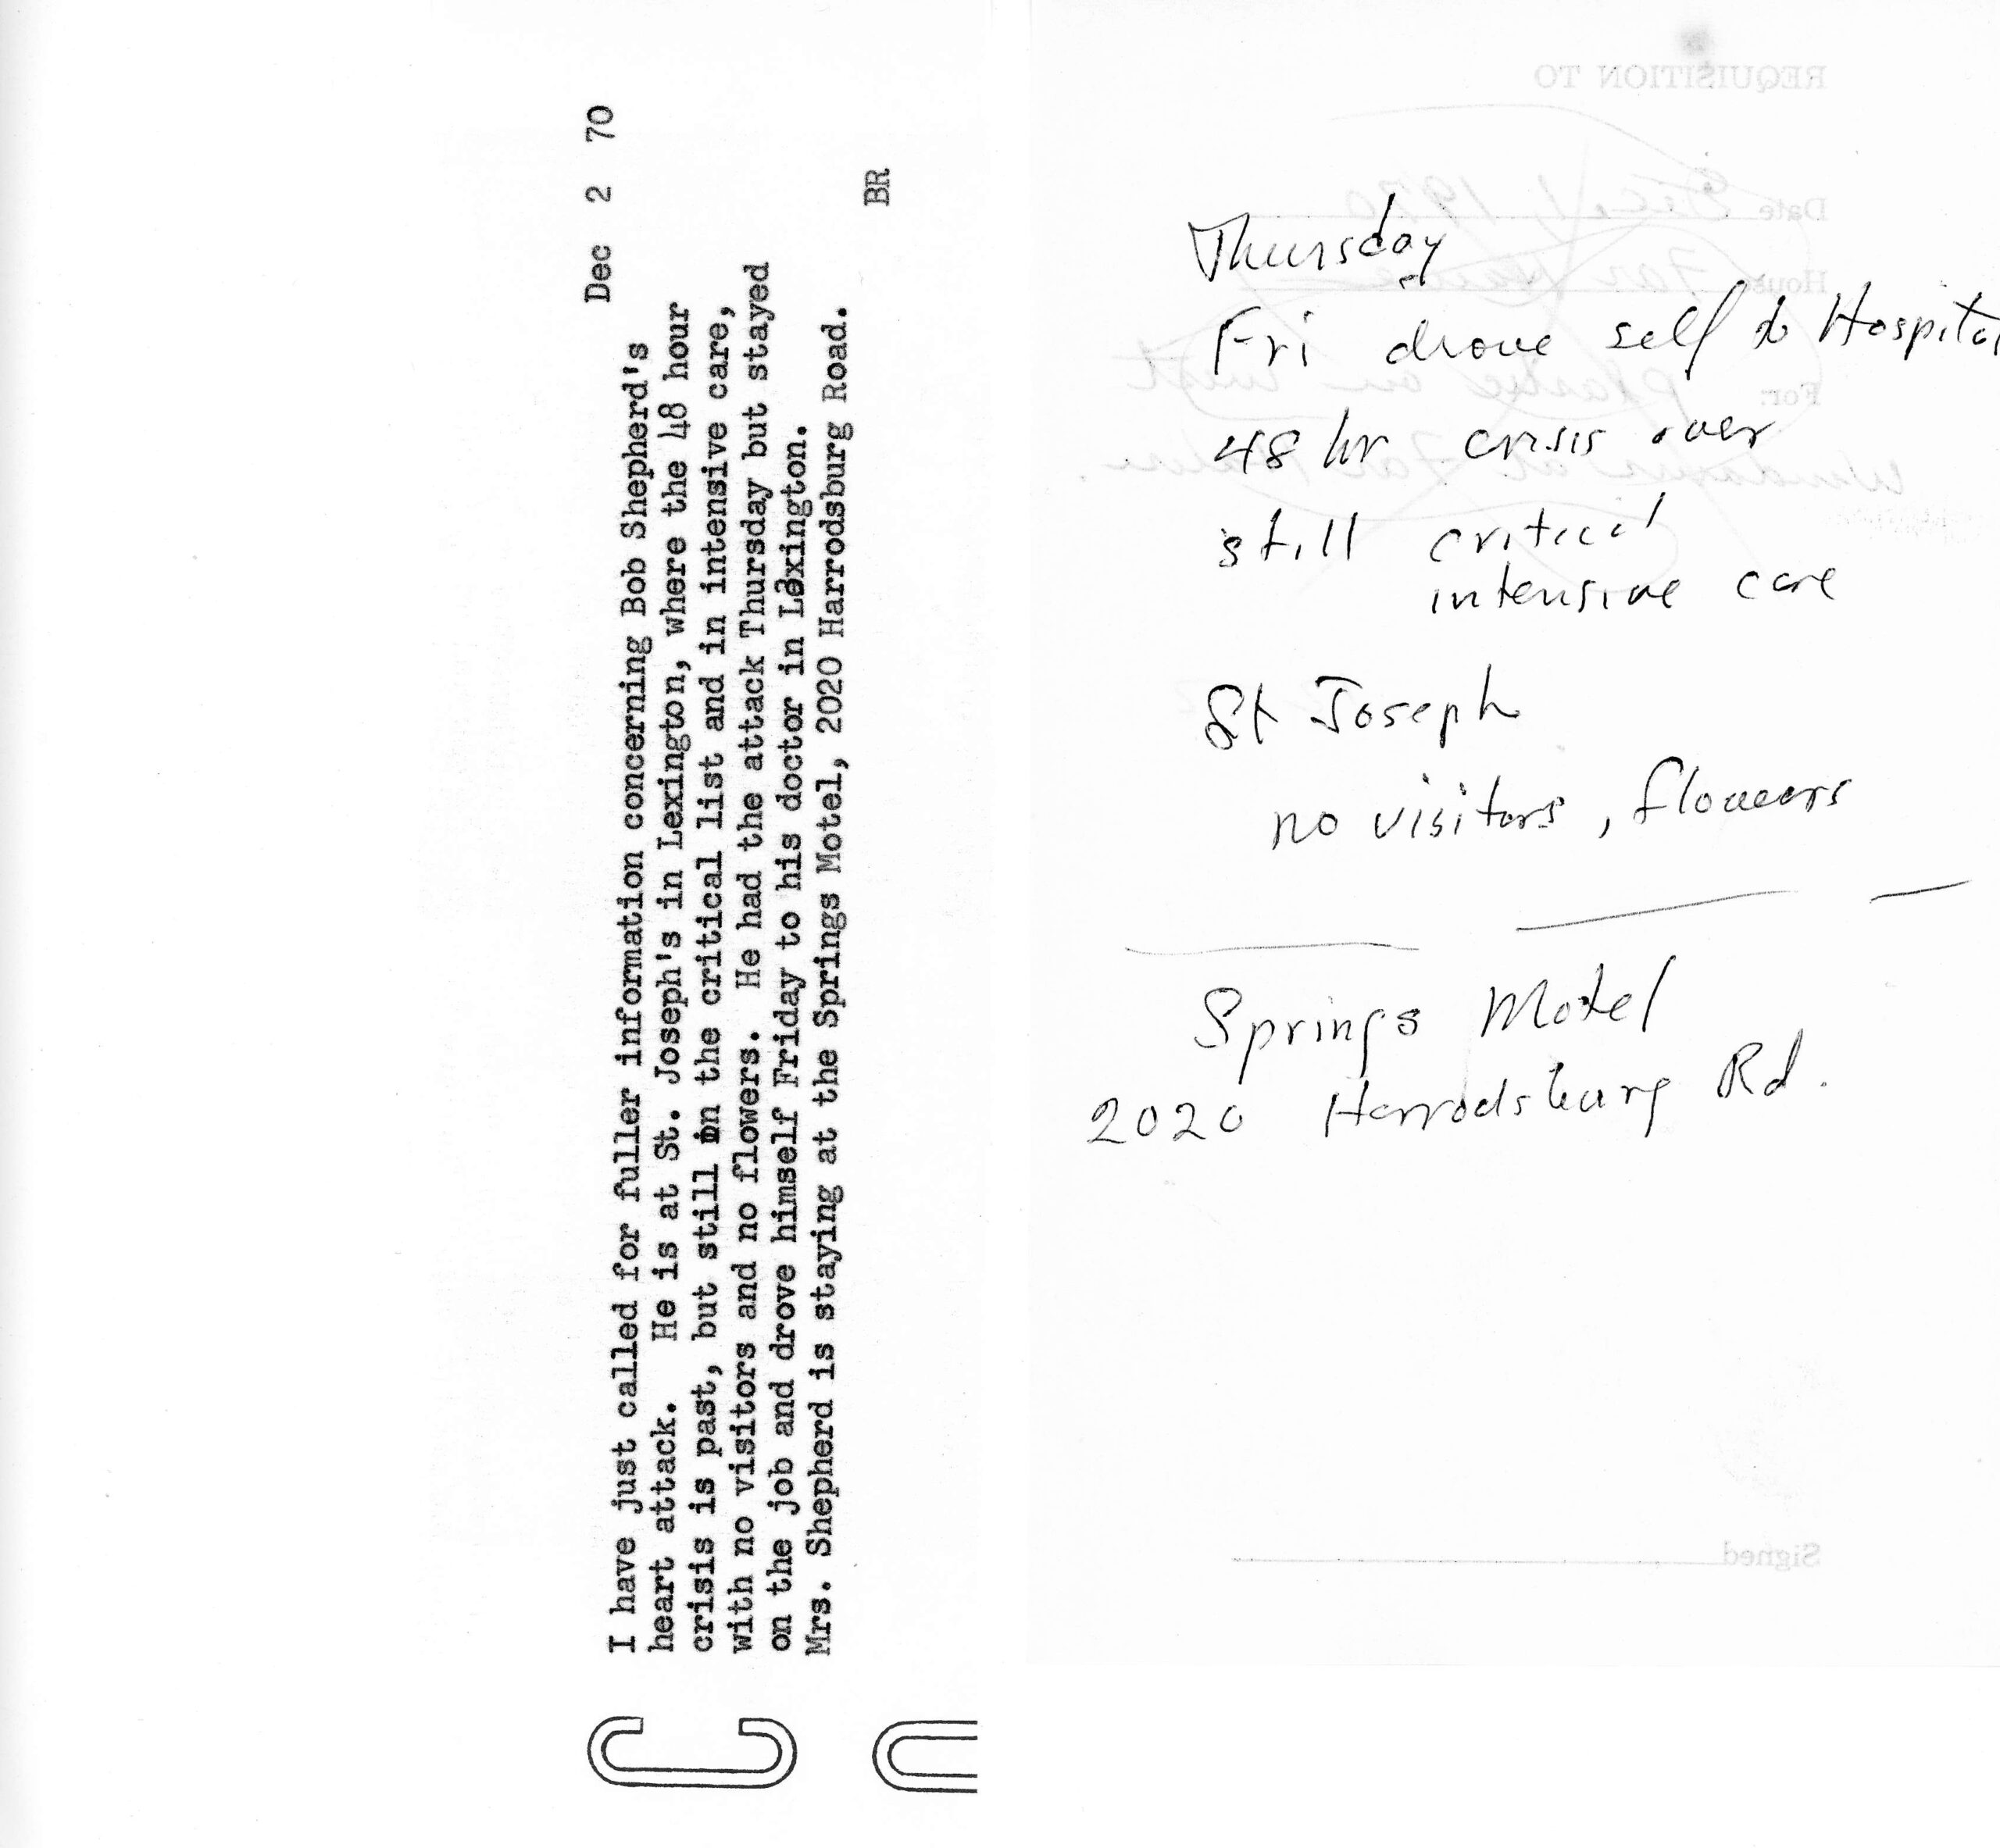 Dec 2 70
I have just called for fuller information concerning Bob Shepherd's
heart attack. He is at St. Joseph's in Lexington, where the 48 hour
crisis is past, but still on the critical list and in intensive care,
with no visitors and no flowers. He had the attack Thursday but stayed
on the job and drove himself Friday to his doctor in Lexington.
Mrs. Shepherd is staying at the Springs Motel, 2020 Harrodsburg Road.
BR
Thursday
Fri drove self to Hospital
48 hr crisis over
still critical
intensive care
St Joseph
no visitors, flowers
Springs Motel
2020 Harrodsburg Rd.
REQUISITION TO
Date Dec. 1, 1970
House
For: plaster on west
Signed